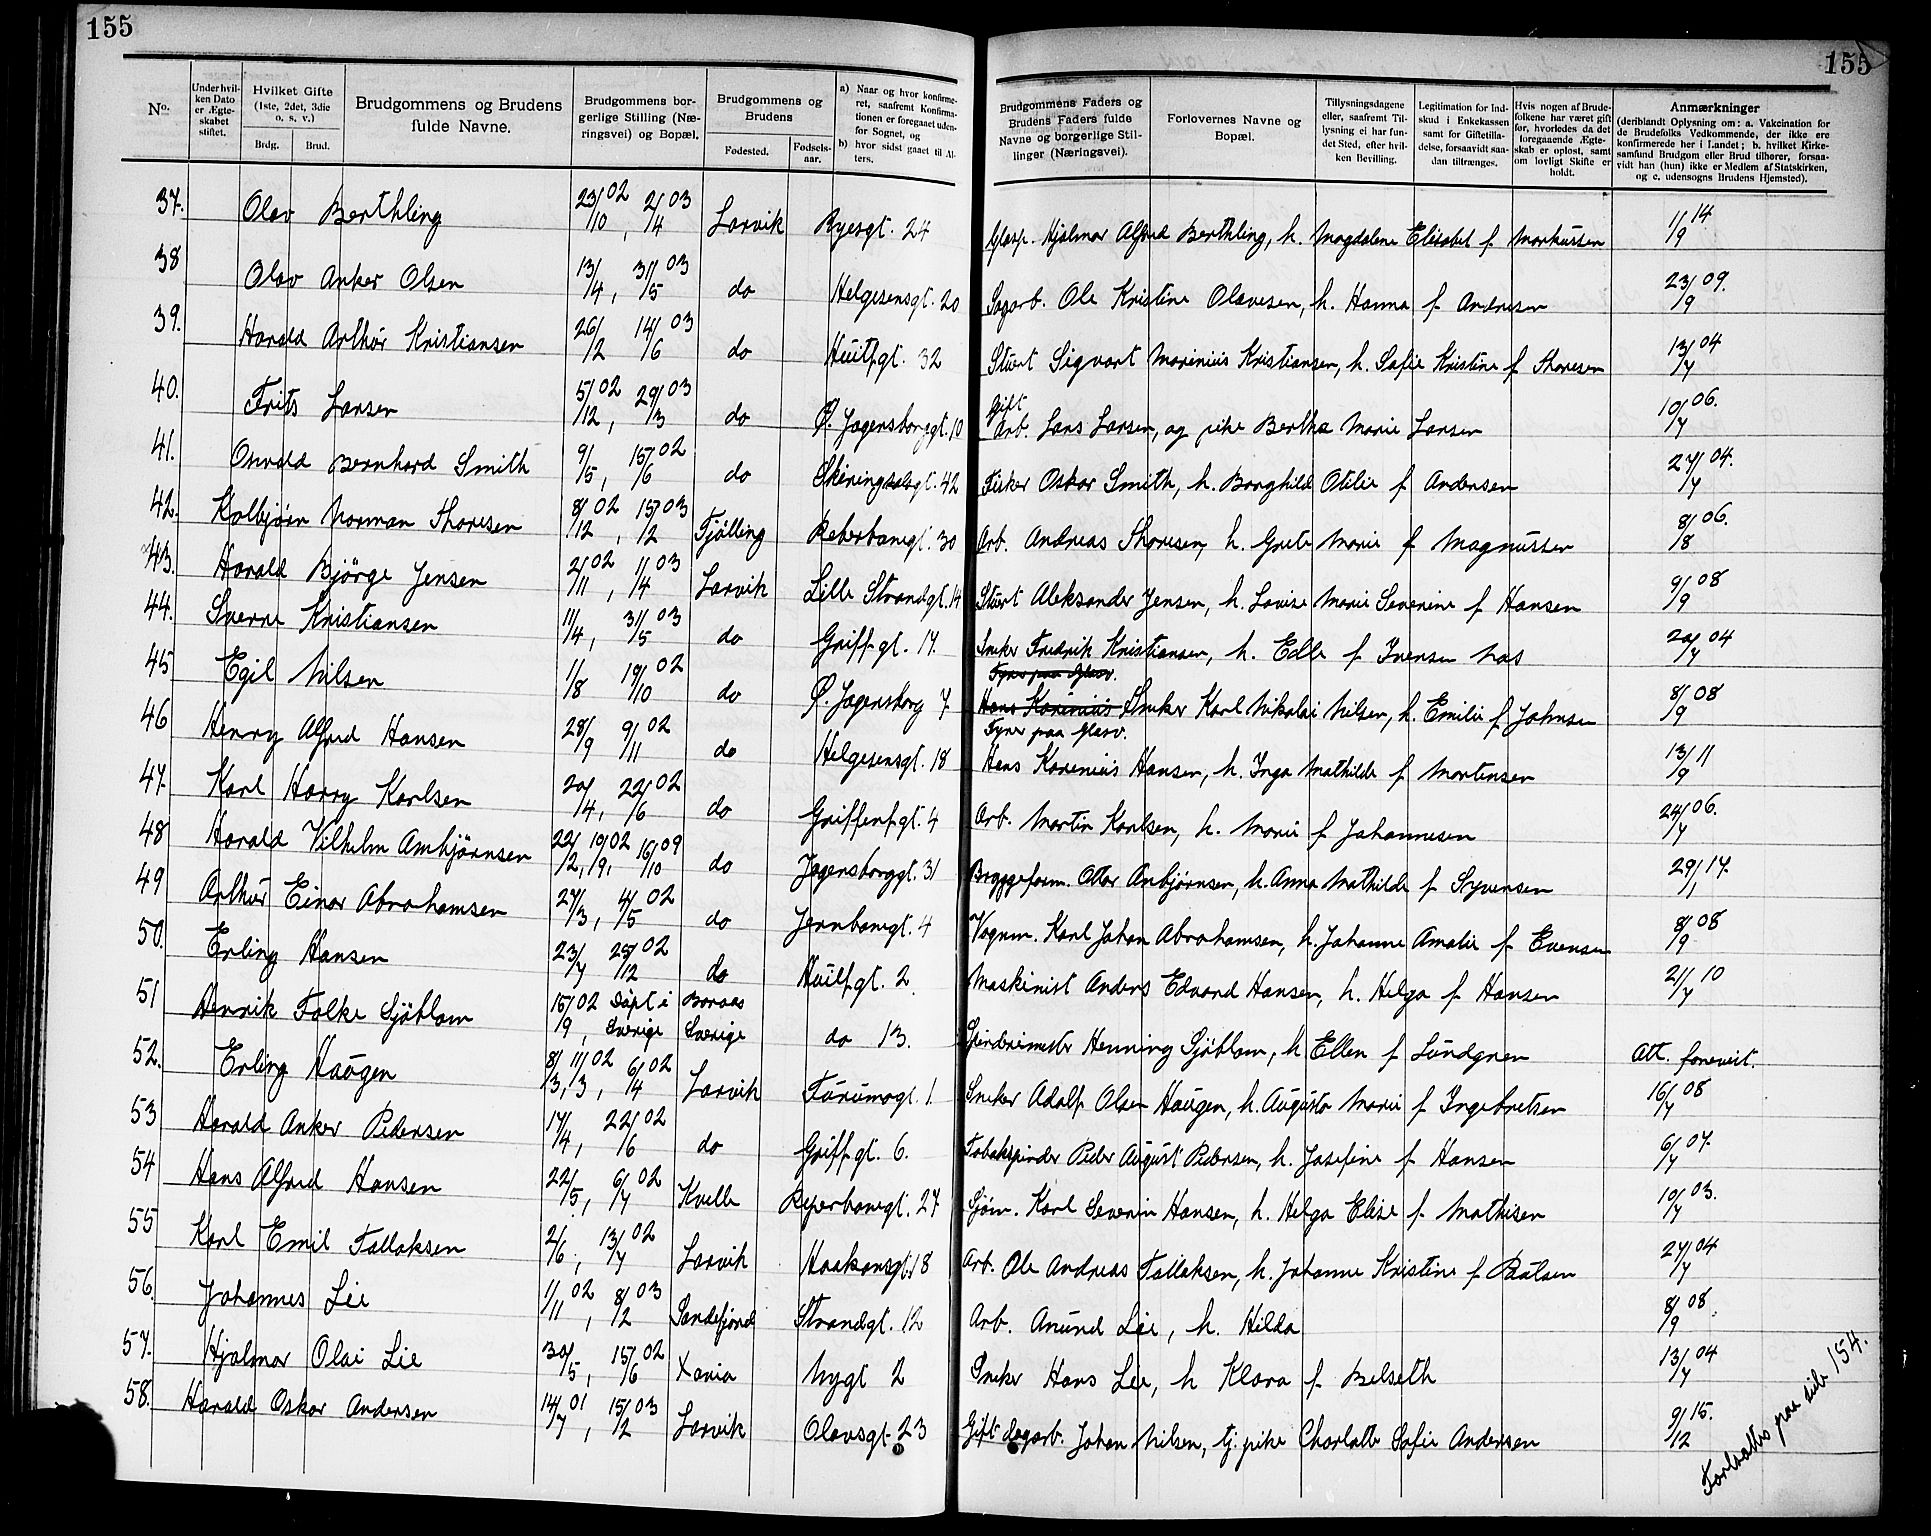 155
155
No.
Under hvilken Dato er Ægteskabet stiftet.
Hvilket Gifte (1ste, 2det, 3die o. s. v.)
Brdg. Brud.
Brudgommens og Brudens fulde Navne.
Brudgommens borgerlige Stilling (Næringsvei) og Bopæl.
Brudgommens og Brudens
Fødested. Fødselsaar.
a) Naar og hvor konfirmeret, saafremt Konfirmationen er foregaaet udenfor Sognet, og
b) hvor sidst gaaet til Alters.
Brudgommens Faders og Brudens Faders fulde Navne og borgerlige Stillinger (Næringsvei).
Forlovernes Navne og Bopæl.
Tillysningsdagene eller, saafremt Tillysning ei har fundet Sted, efter hvilken Bevilling.
Legitimation for Indskud i Enkekassen samt for Giftetilladelse, forsaavidt saadan tiltrænges.
Hvis nogen af Brudefolkene har været gift før, hvorledes da det foregaaende Ægteskab er opløst, samt om lovligt Skifte er holdt.
Anmærkninger
(deriblandt Oplysning om: a. Vakcination for de Brudefolks Vedkommende, der ikke ere konfirmerede her i Landet; b. hvilket Kirkesamfund Brudgom eller Brud tilhører, forsaavidt han (hun) ikke er Medlem af Statskirken, og c. udensogns Brudens Hjemsted).
37. Olav Berthling 23/10 02, 2/4 03 Larvik Ryesgt. 24 Glasp. Hjalmar Alfred Berthling, h. Magdalene Elisabet f Markussen 1/9 14
38 Olav Anker Olsen 13/4, 31/5 03 do Helgesensgt. 20 Sagarb. Ole Kristine Olavesen, h. Hanna f Andresen 23/9 09.
39. Harald Arthur Kristiansen 26/2 14/6 03 do Huitfgt. 32 Stuert Sigvart Marinius Kristiansen, h. Sofie Kristine f Thoresen 13/7 04
40. Frits Larsen 5/12 02, 29/3 03 do Ø. Jegersborggt. 10 Gift Arb. Lars Larsen, og pike Bertha Marie Larsen 10/7 06.
41. Osvald Bernhard Smith 9/5, 15/6 02 do Skiringsalsgt. 42 Fisker Oskar Smith, h. Borghild Otilie f Andersen 27/7 04.
42. Kolbjørn Norman Thoresen 8/12 02, 15/2 03 Tjølling Reberbanegt. 30 Arb. Andreas Thoresen, h. Grete Marie f Magnussen 8/8 06.
43. Harald Bjørge Jensen 2/11 02, 1/4 03 Larvik Lille Strandgt. 14 Stuert Aleksander Jensen, h. Lovise Marie Severine f Hansen 9/9 08
44. Sverre Kristiansen 11/4, 31/5 03 do Griffgt. 17. Sneker Fredrik Kristiansen, h. Edle f Iversen Næs 20/7 04
45 Egil Nilsen 1/8 19/10 02 do Ø. Jegersborg 7 Fyrer paa Glasv. Hans Karinius Sneker Karl Nikolai Nilsen, h. Emilie f Johnsen 8/9 08
46 Henry Alfred Hansen 28/9 9/11 02 do Helgesensgt. 18 Fyrer paa Glasv. Hans Karenius Hansen, h. Inga Mathilde f Mortensen 13/9 11
47. Karl Harry Karlsen 20/4, 22/6 02 do Griffenfgt. 4 Arb. Martin Karlsen, h. Marie f Johannesen 24/7 06.
48 Harald Vilhelm Ambjørnsen 22/2, 19/9 02, 16/10 09 do Jegersborggt. 31 Bryggeform. Ottar Anbjørnsen, h. Anna Mathilde f Syvensen 29/1 17.
49 Arthur Einar Abrahamsen 27/3, 4/5 02 do Jernbanegt. 4 Vognm. Karl Johan Abrahamsen, h. Johanne Amalie f Evensen 8/9 08
50. Erling Hansen 23/7 25/12 02 do Huitfgt. 2. Maskinist Anders Edvard Hansen, h. Helga f Hansen 21/7 10
51 Henrik Folke Sjöblom 15/9 02, Döpt i Sverige Boraas Sverige do 13. Spinderimester Henning Sjöblom, h Ellen f Lundgren Att. forevist.
52. Erling Haugen 8/3, 11/3 02, 6/4 02 Larvik Furumogt. 1. Sneker Adolf Olsen Haugen, h. Augusta Marie f Ingebretsen 16/7 08
53 Harald Anker Pedersen 17/4, 22/6 02 do Griffgt. 6. Tobakspinder Peder August Pedersen, h. Josefine f Hansen 6/7 07.
54 Hans Alfred Hansen 22/5, 6/7 02 Kvelle Reperbanegt. 27 Sjøm. Karl Severin Hansen, h. Helga Elise f Mathisen 10/7 03.
55 Karl Emil Tallaksen 2/6, 13/7 02 Larvik Haakonsgt. 18 Arb. Ole Andreas Tallaksen, h. Johanne Kristine f Paulsen 27/7 04
56. Johannes Lie 1/11 02, 8/12 03 Sandefjord Strandgt. 12 Arb. Anund Lie, h. Hilda 8/9 08.
57. Hjalmar Olai Lie 30/5, 15/6 02 Xania Nygt 2 Sneker Hans Lie, h Klara f Belseth 13/7 04
58. Harald Oskar Andersen 14/7 01, 15/2 03 Larvik Olavsgt. 23 Gift Sagarb. Johan Nilsen, tj. pike Charlotte Sofie Andersen 9/12 15.
Fortsattes paa side 154.